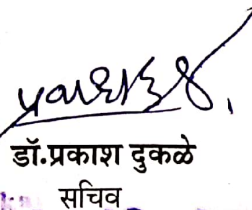 डॉ.प्रकाश दुकळे
सचिव